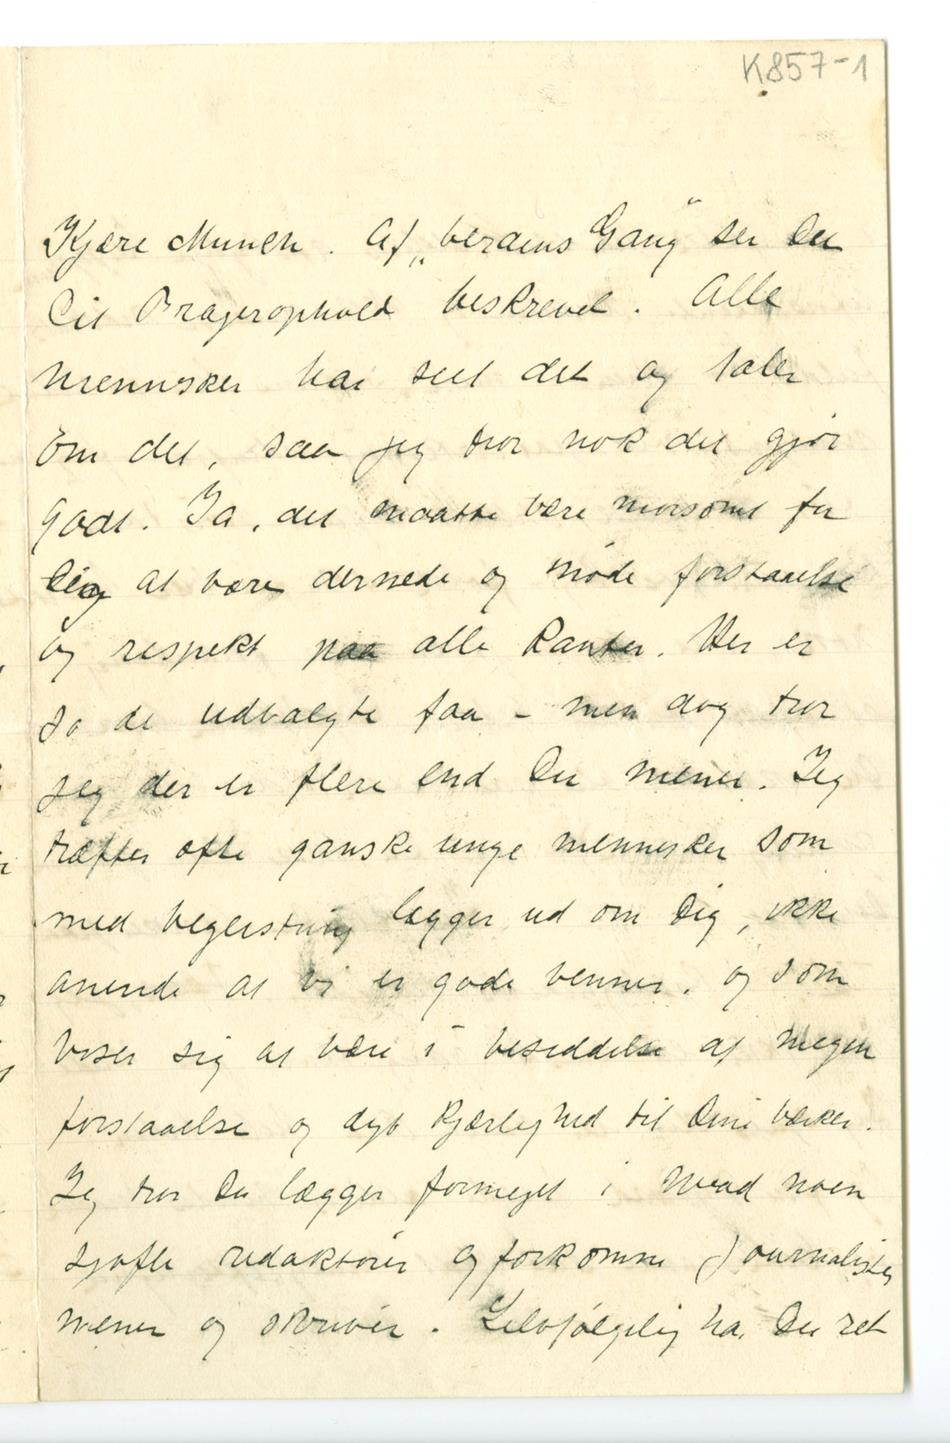 K857-1
Kjære Munch. Af „Verdens Gang" ser Du
Dit Pragerophold beskrevet. Alle
mennesker har seet det og taler
om det, saa jeg tror nok det gjør
godt. Ja, det maatte være morsomt for
Dig at være dernede og møde forstaaelse
og respekt paa alle Kanter. Her er
jo de udvalgte faa – men dog tror
jeg der er flere end Du mener. Jeg
træffer ofte ganske unge mennesker som
med begeistring lægger ud om Dig, ikke
anende at vi er gode venner, og som
viser sig at være i besiddelse af megen
forstaaelse og dyb Kjærlighed til Dine værker.
Jeg tror Du lægger formeget i hvad noen
sjofle redaktører og forkomne Journalister
mener og skriver. Selvfølgelig ha. Du ret